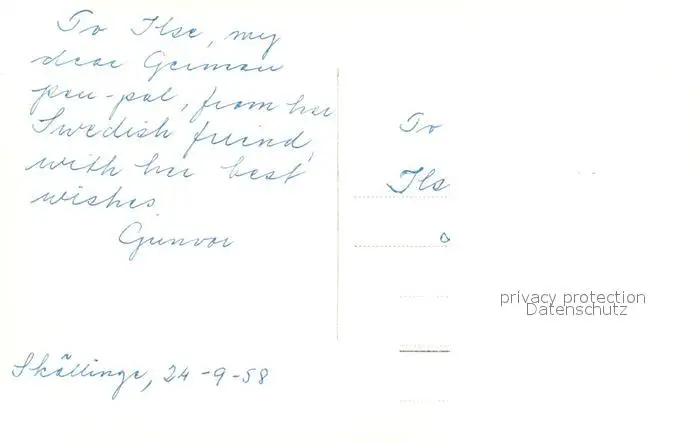 To Ilse, my
dear German
pen-pal, from her
Swedish friend,
with her best
wishes
Gunvor
Skällinge, 24-9-58
To
Ils
privacy protection
Datenschutz